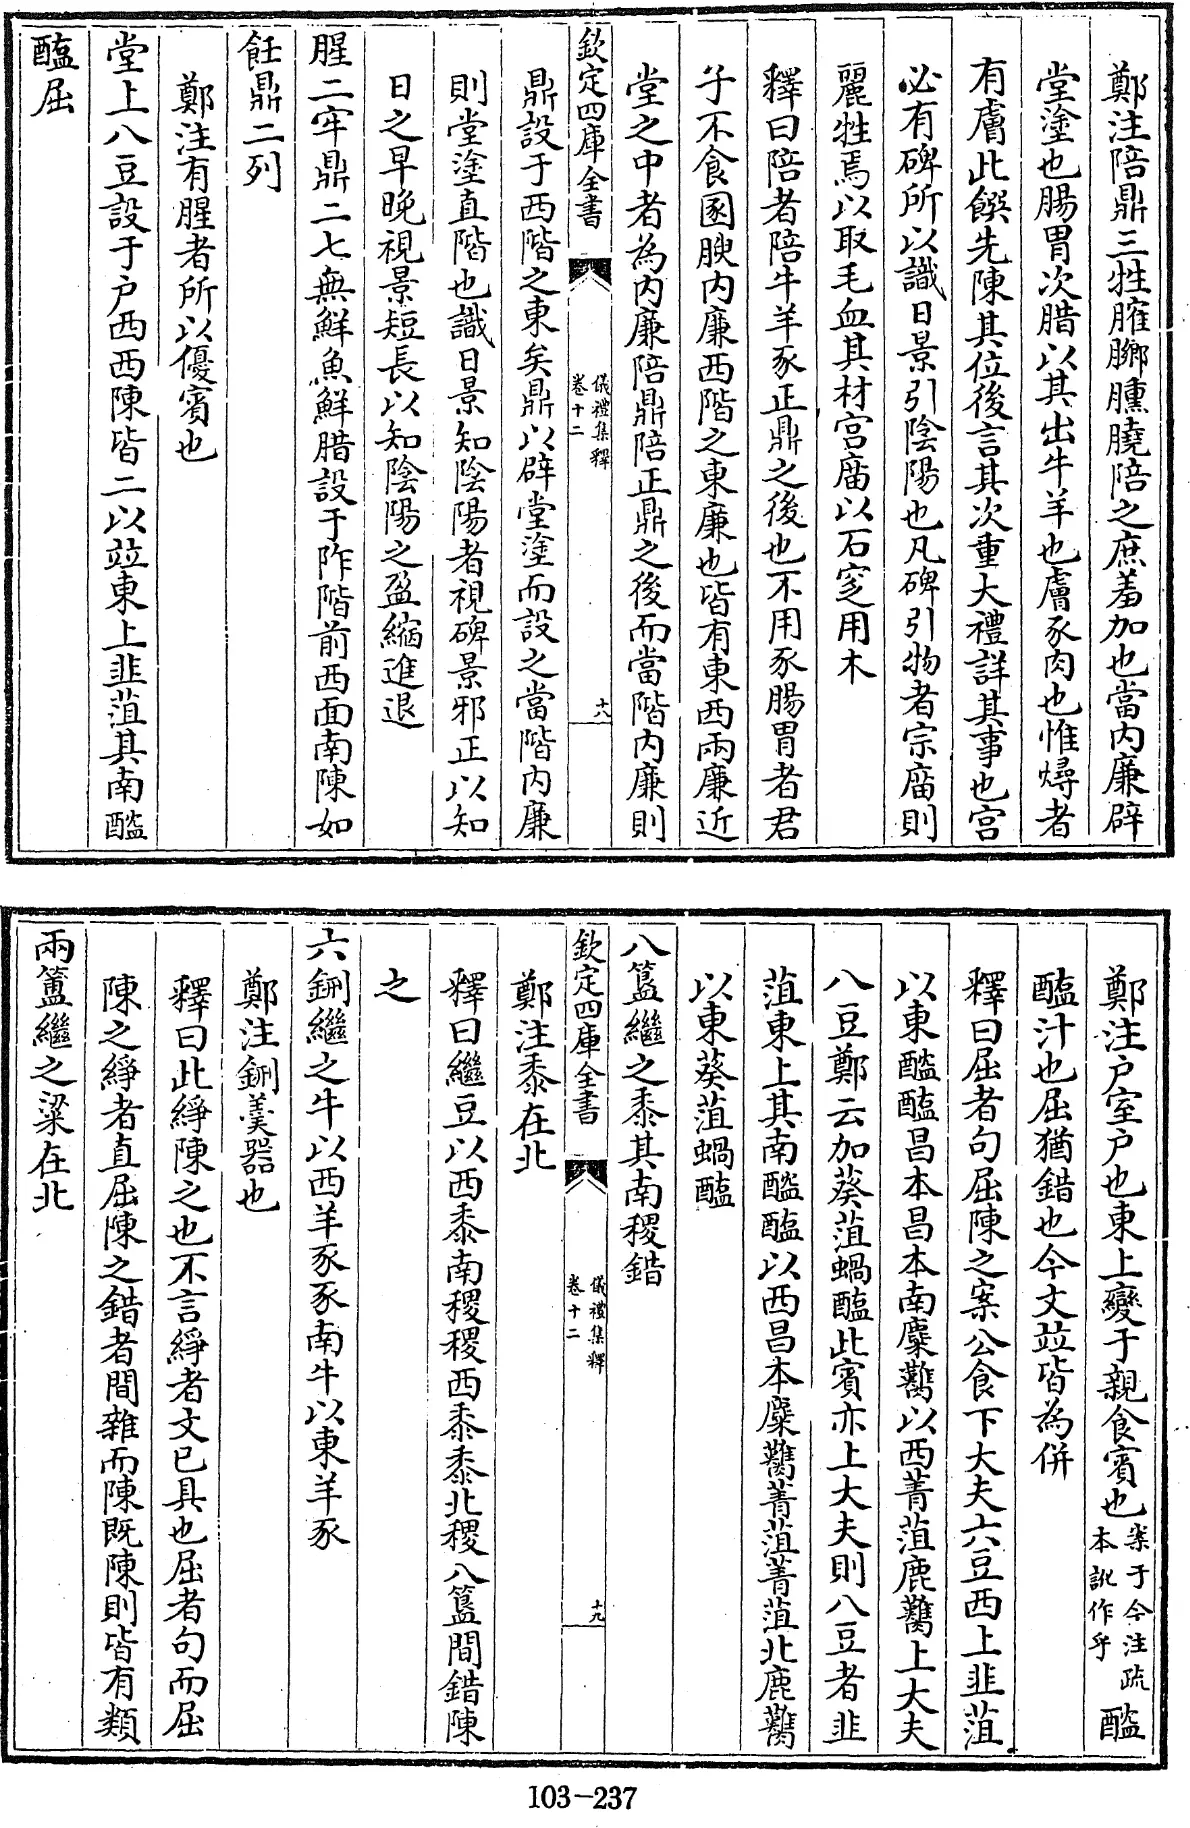 鄭注陪鼎三牲臛膷臐膮陪之庶羞加也當内廉辟
堂塗也腸胃次腊以其出牛羊也膚豕肉也惟燖者
有膚此饌先陳其位後言其次重大禮詳其事也宫
必有碑所以識日景引陰陽也凡碑引物者宗廟則
麗牲焉以取毛血其材宫廟以石窆用木
釋曰陪者陪牛羊豕正鼎之後也不用豕腸胃者君
子不食圂腴内廉西階之東廉也皆有東西兩廉近
堂之中者為内廉陪鼎陪正鼎之後而當階内廉則
欽定四庫全書
儀禮集釋
卷十二
十八
鼎設于西階之東矣鼎以辟堂塗而設之當階内廉
則堂塗直階也識日景知陰陽者視碑景邪正以知
日之早晚視景短長以知陰陽之盈縮進退
腥二牢鼎二七無鮮魚鮮腊設于阼階前西面南陳如
飪鼎二列
鄭注有腥者所以優賓也
堂上八豆設于户西西陳皆二以竝東上韭菹其南醓
醢屈
鄭注户室户也東上變于親食賓也案于今注疏本訛作乎醓
醢汁也屈猶錯也今文竝皆為併
釋曰屈者句屈陳之案公食下大夫六豆西上韭菹
以東醓醢昌本昌本南麋臡以西菁菹鹿臡上大夫
八豆鄭云加葵菹蝸醢此賓亦上大夫則八豆者韭
菹東上其南醓醢以西昌本麋臡菁菹菁菹北鹿臡
以東葵菹蝸醢
八簋繼之黍其南稷錯
欽定四庫全書
儀禮集釋
卷十二
十九
鄭注黍在北
釋曰繼豆以西黍南稷稷西黍黍北稷八簋間錯陳
之
六鉶繼之牛以西羊豕豕南牛以東羊豕
鄭注鉶羮器也
釋曰此綪陳之也不言綪者文已具也屈者句而屈
陳之綪者直屈陳之錯者間雜而陳既陳則皆有類
兩簠繼之粱在北
103-237